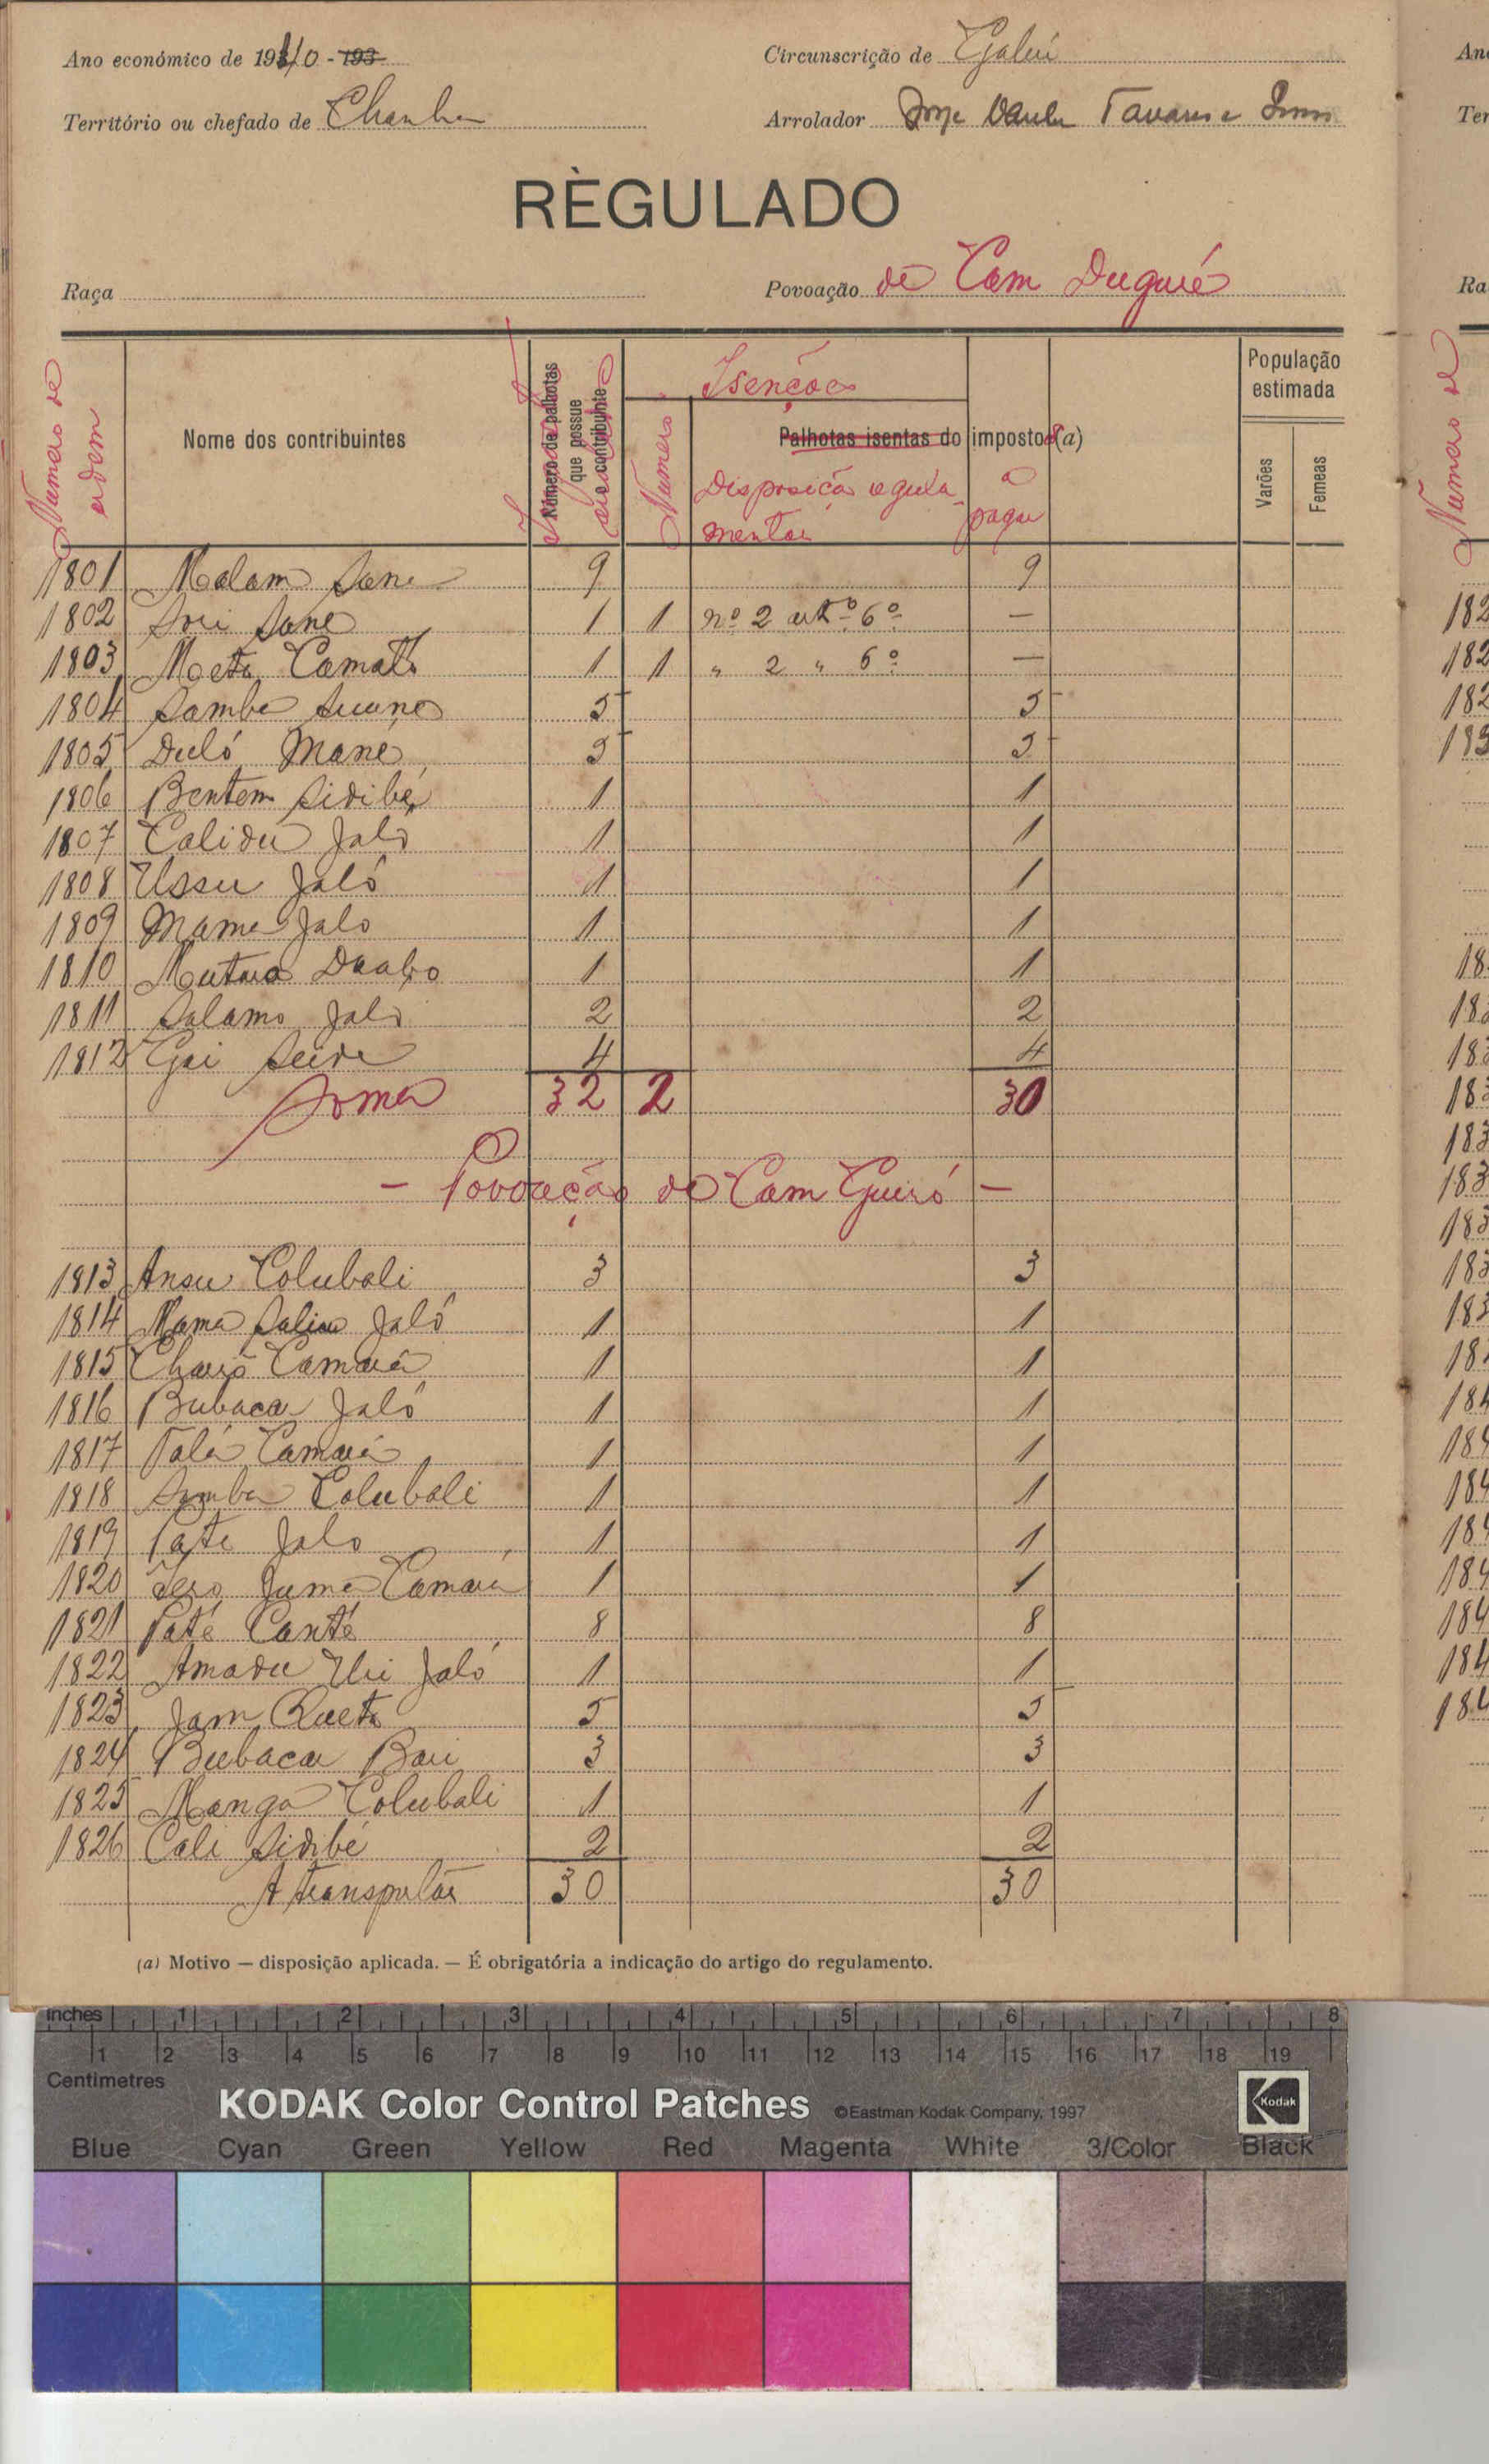 Ano económico de 1940 - 193
Circunscrição de Gabú
Território ou chefado de Chanha
Arrolador Jorje Tavares
RÈGULADO
Raça
Povoação de Cam Duguié
Numero de ordem
Nome dos contribuintes
Número de palhotas que possue o contribuinte
Numero
Isenções
Palhotas isentas do imposto (a)
Disposição regulamentar
a pagar
População estimada
Varões
Femeas
1801 Malam Sane 9 9
1802 Sori Sane 1 1 nº 2 artº 6º —
1803 Meta Camatá 1 1 " 2 " 6º —
1804 Samba Suane 5 5
1805 Duló Mané 5 5
1806 Bentem Sidibé 1 1
1807 Calidu Jaló 1 1
1808 Ussu Jaló 1 1
1809 Mama Jalo 1 1
1810 Mutaro Daabo 1 1
1811 Salamo Jaló 2 2
1812 Gai Seide 4 4
Soma 32 2 30
— Povoação de Cam Gueiró —
1813 Ansu Colubali 3 3
1814 Mama Saliu Jaló 1 1
1815 Camará 1 1
1816 Bubacar Jaló 1 1
1817 Talá Camará 1 1
1818 Samba Colubali 1 1
1819 Pate Jalo 1 1
1820 Juma Camará 1 1
1821 Paté Canté 8 8
1822 Amadu Uri Jaló 1 1
1823 Jam Queta 5 5
1824 Bubacar Bari 3 3
1825 Manga Colubali 1 1
1826 Cali Sidibé 2 2
A transportar 30 30
(a) Motivo — disposição aplicada. — É obrigatória a indicação do artigo do regulamento.
Inches 1 2 3 4 5 6 7 8
1 2 3 4 5 6 7 8 9 10 11 12 13 14 15 16 17 18 19
Centimetres
KODAK Color Control Patches ©Eastman Kodak Company, 1997 Kodak
Blue Cyan Green Yellow Red Magenta White 3/Color Black